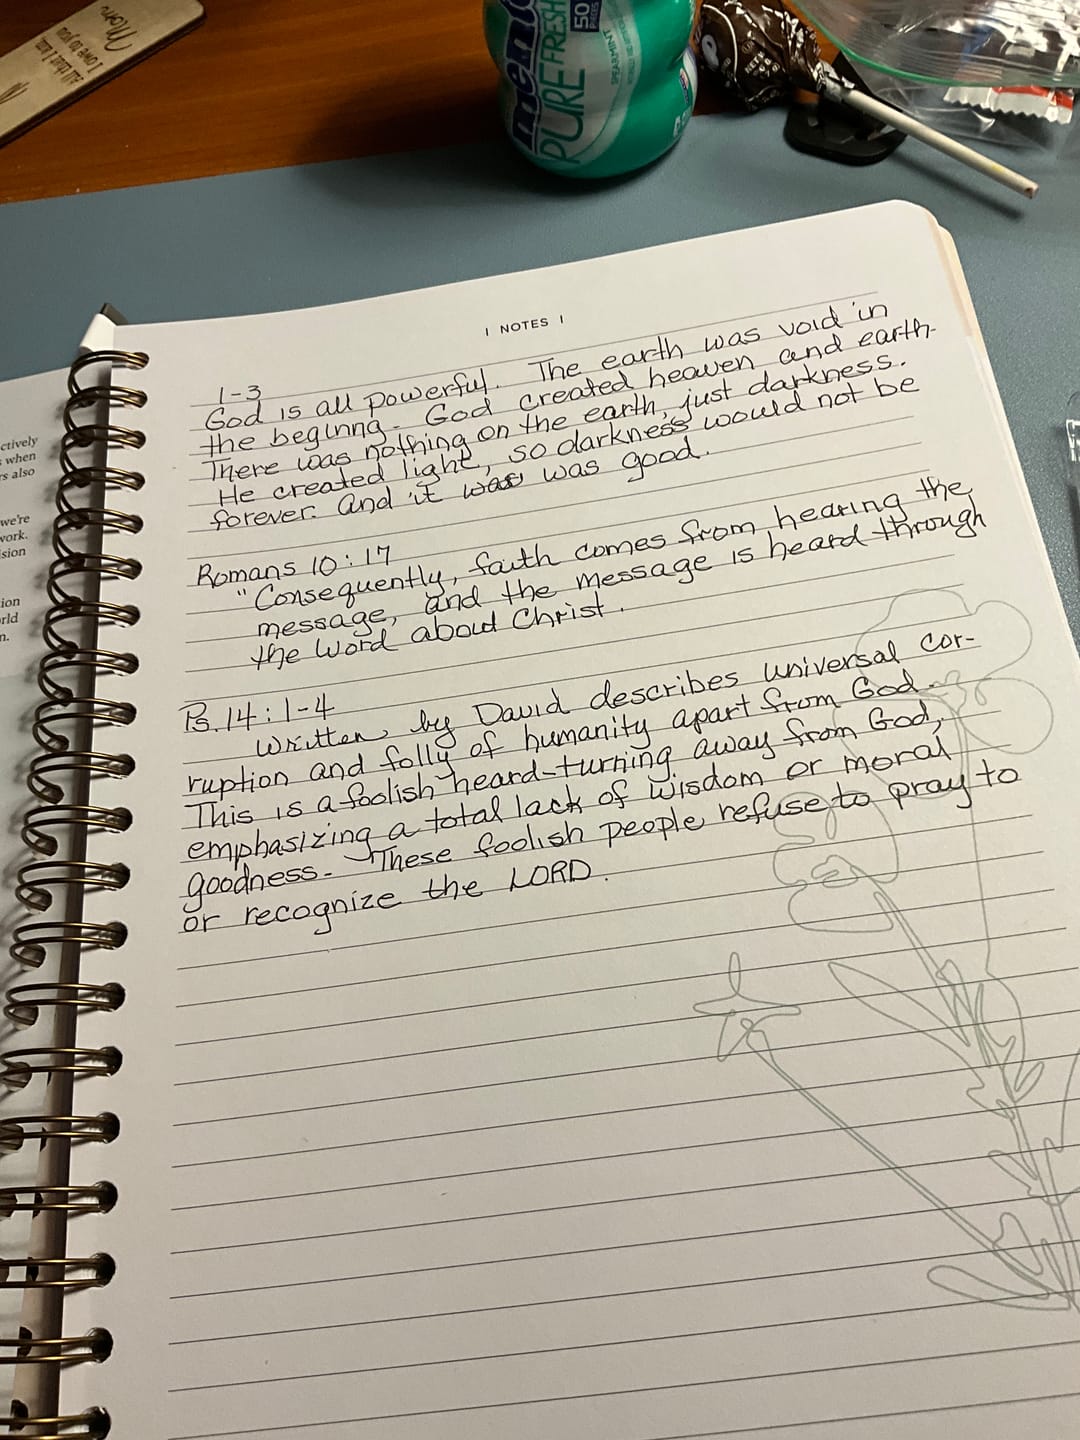 All that I am,
I owe to you
Mom
mento
PURE FRESH
50
PIECES
SPEARMINT
ctively
when
rs also
we're
work.
sion
ion
rld
n.
| NOTES |
1-3
God is all powerful. The earth was void in
the beginng. God created heaven and earth.
There was nothing on the earth, just darkness.
He created light, so darkness would not be
forever. And it was was good.
Romans 10:17
"Consequently, faith comes from hearing the
message, and the message is heard through
the word about Christ.
Ps. 14:1-4
Written by David describes universal cor-
ruption and folly of humanity apart from God.
This is a foolish heard-turning away from God,
emphasizing a total lack of wisdom or moral
goodness. These foolish people refuse to pray to
or recognize the LORD.